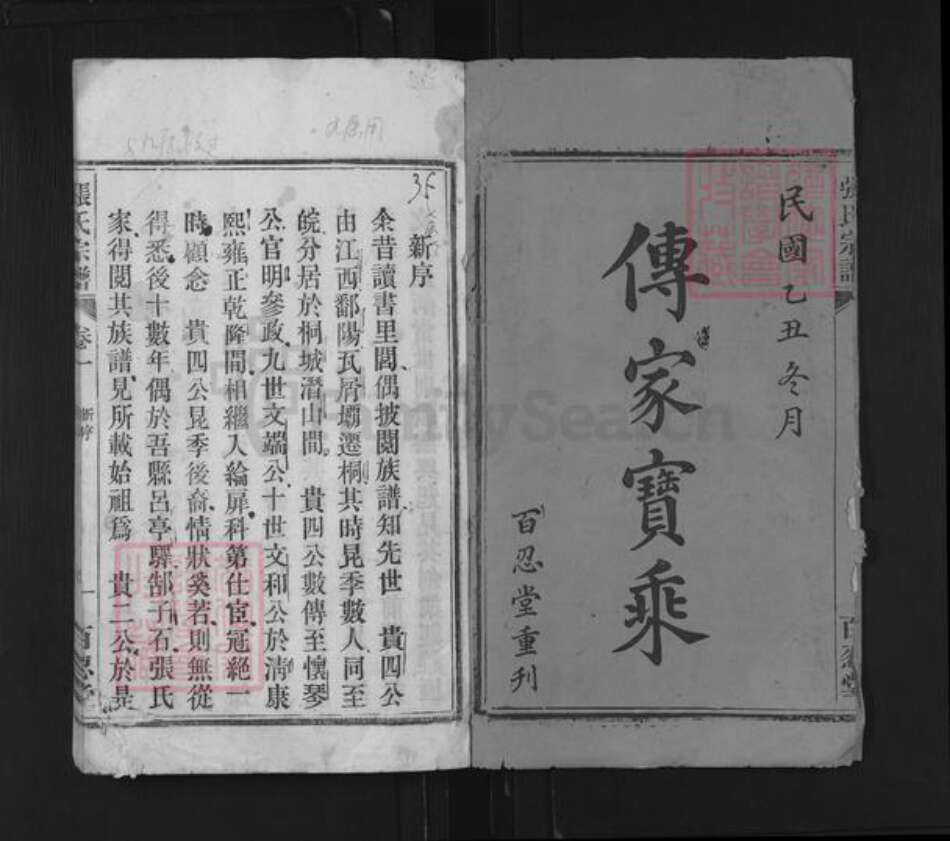 民國乙丑冬月
傳家寶乘
百忍堂重刊
張氏宗譜
百忍堂
新序
余昔讀書里閭偶披閱族譜知先世 貴四公
由江西鄱陽瓦屑壩遷桐其時昆季數人同至
皖分居於桐城潛山間 貴四公數傳至懷琴
公官明參政九世文端公十世文和公於清康
熙雍正乾隆間相繼入綸扉科第仕宦冠絕一
時顧念 貴四公昆季後裔情狀奚若則無從
得悉後十數年偶於吾縣呂亭驛郜子石張氏
家得閱其族譜見所載始祖爲 貴二公於是
張氏宗譜 卷一 新序 一 百忍堂
35
FamilySearch